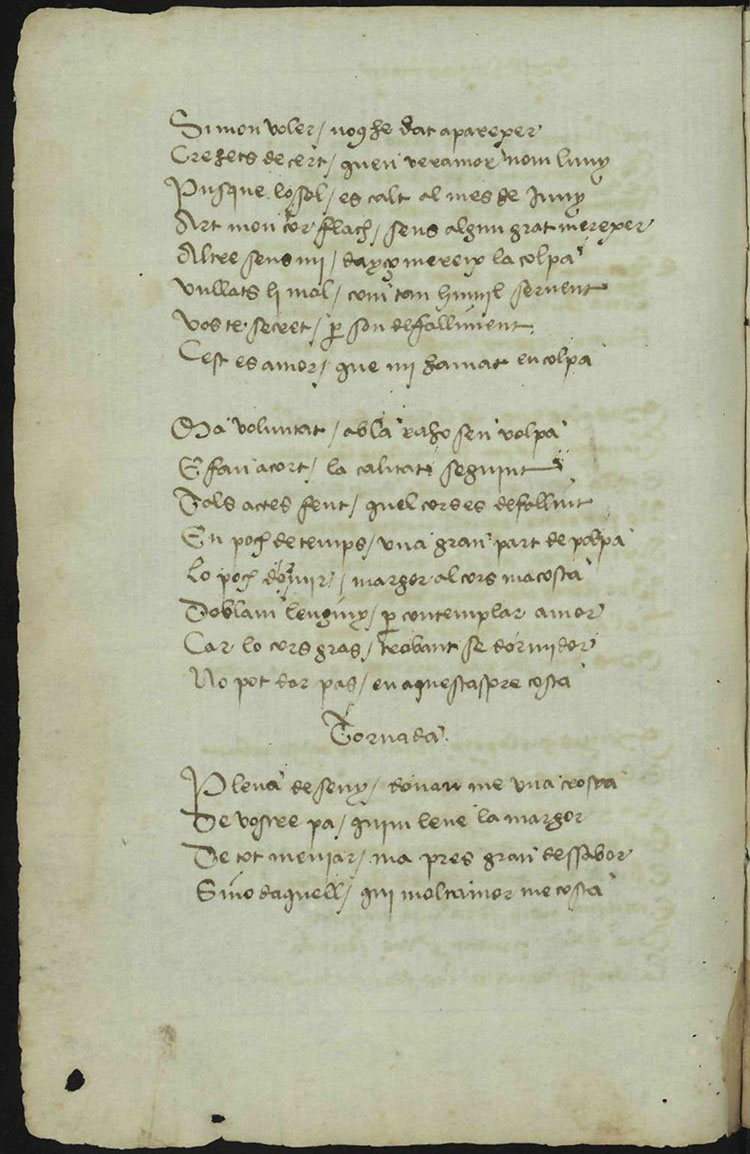 Si mon voler / nog he dat a parexer
Crehets de cert / quen ver amor nom luny
Pusque lo sol / es calt al mes de Juny
Art mon cor flach / sens algun grat merexer
Altre sens mi / daço mereix la colpa
Vullats li mal / com tan humil servent
Vos te secret / per son defalliment
Cest es amor / que mi ha mat en colpa
Ma voluntat / ab la raho sen volpa
E fan acort / la calitat seguint
Tals actes fent / quel cors es defallint
En poch de temps / una gran part de polpa
Lo poch dormir / margor al cors macosta
Doblam lenginy / per contemplar amor
Car lo cors gras / trobant se dormidor
No pot dar pas / en aquestaspre costa
Tornada.
Plena de seny / donau me una crosta
De vostre pa / quim leve la margor
De tot menjar / ma pres gran dessabor
Sino daquell / qui molt amor me costa